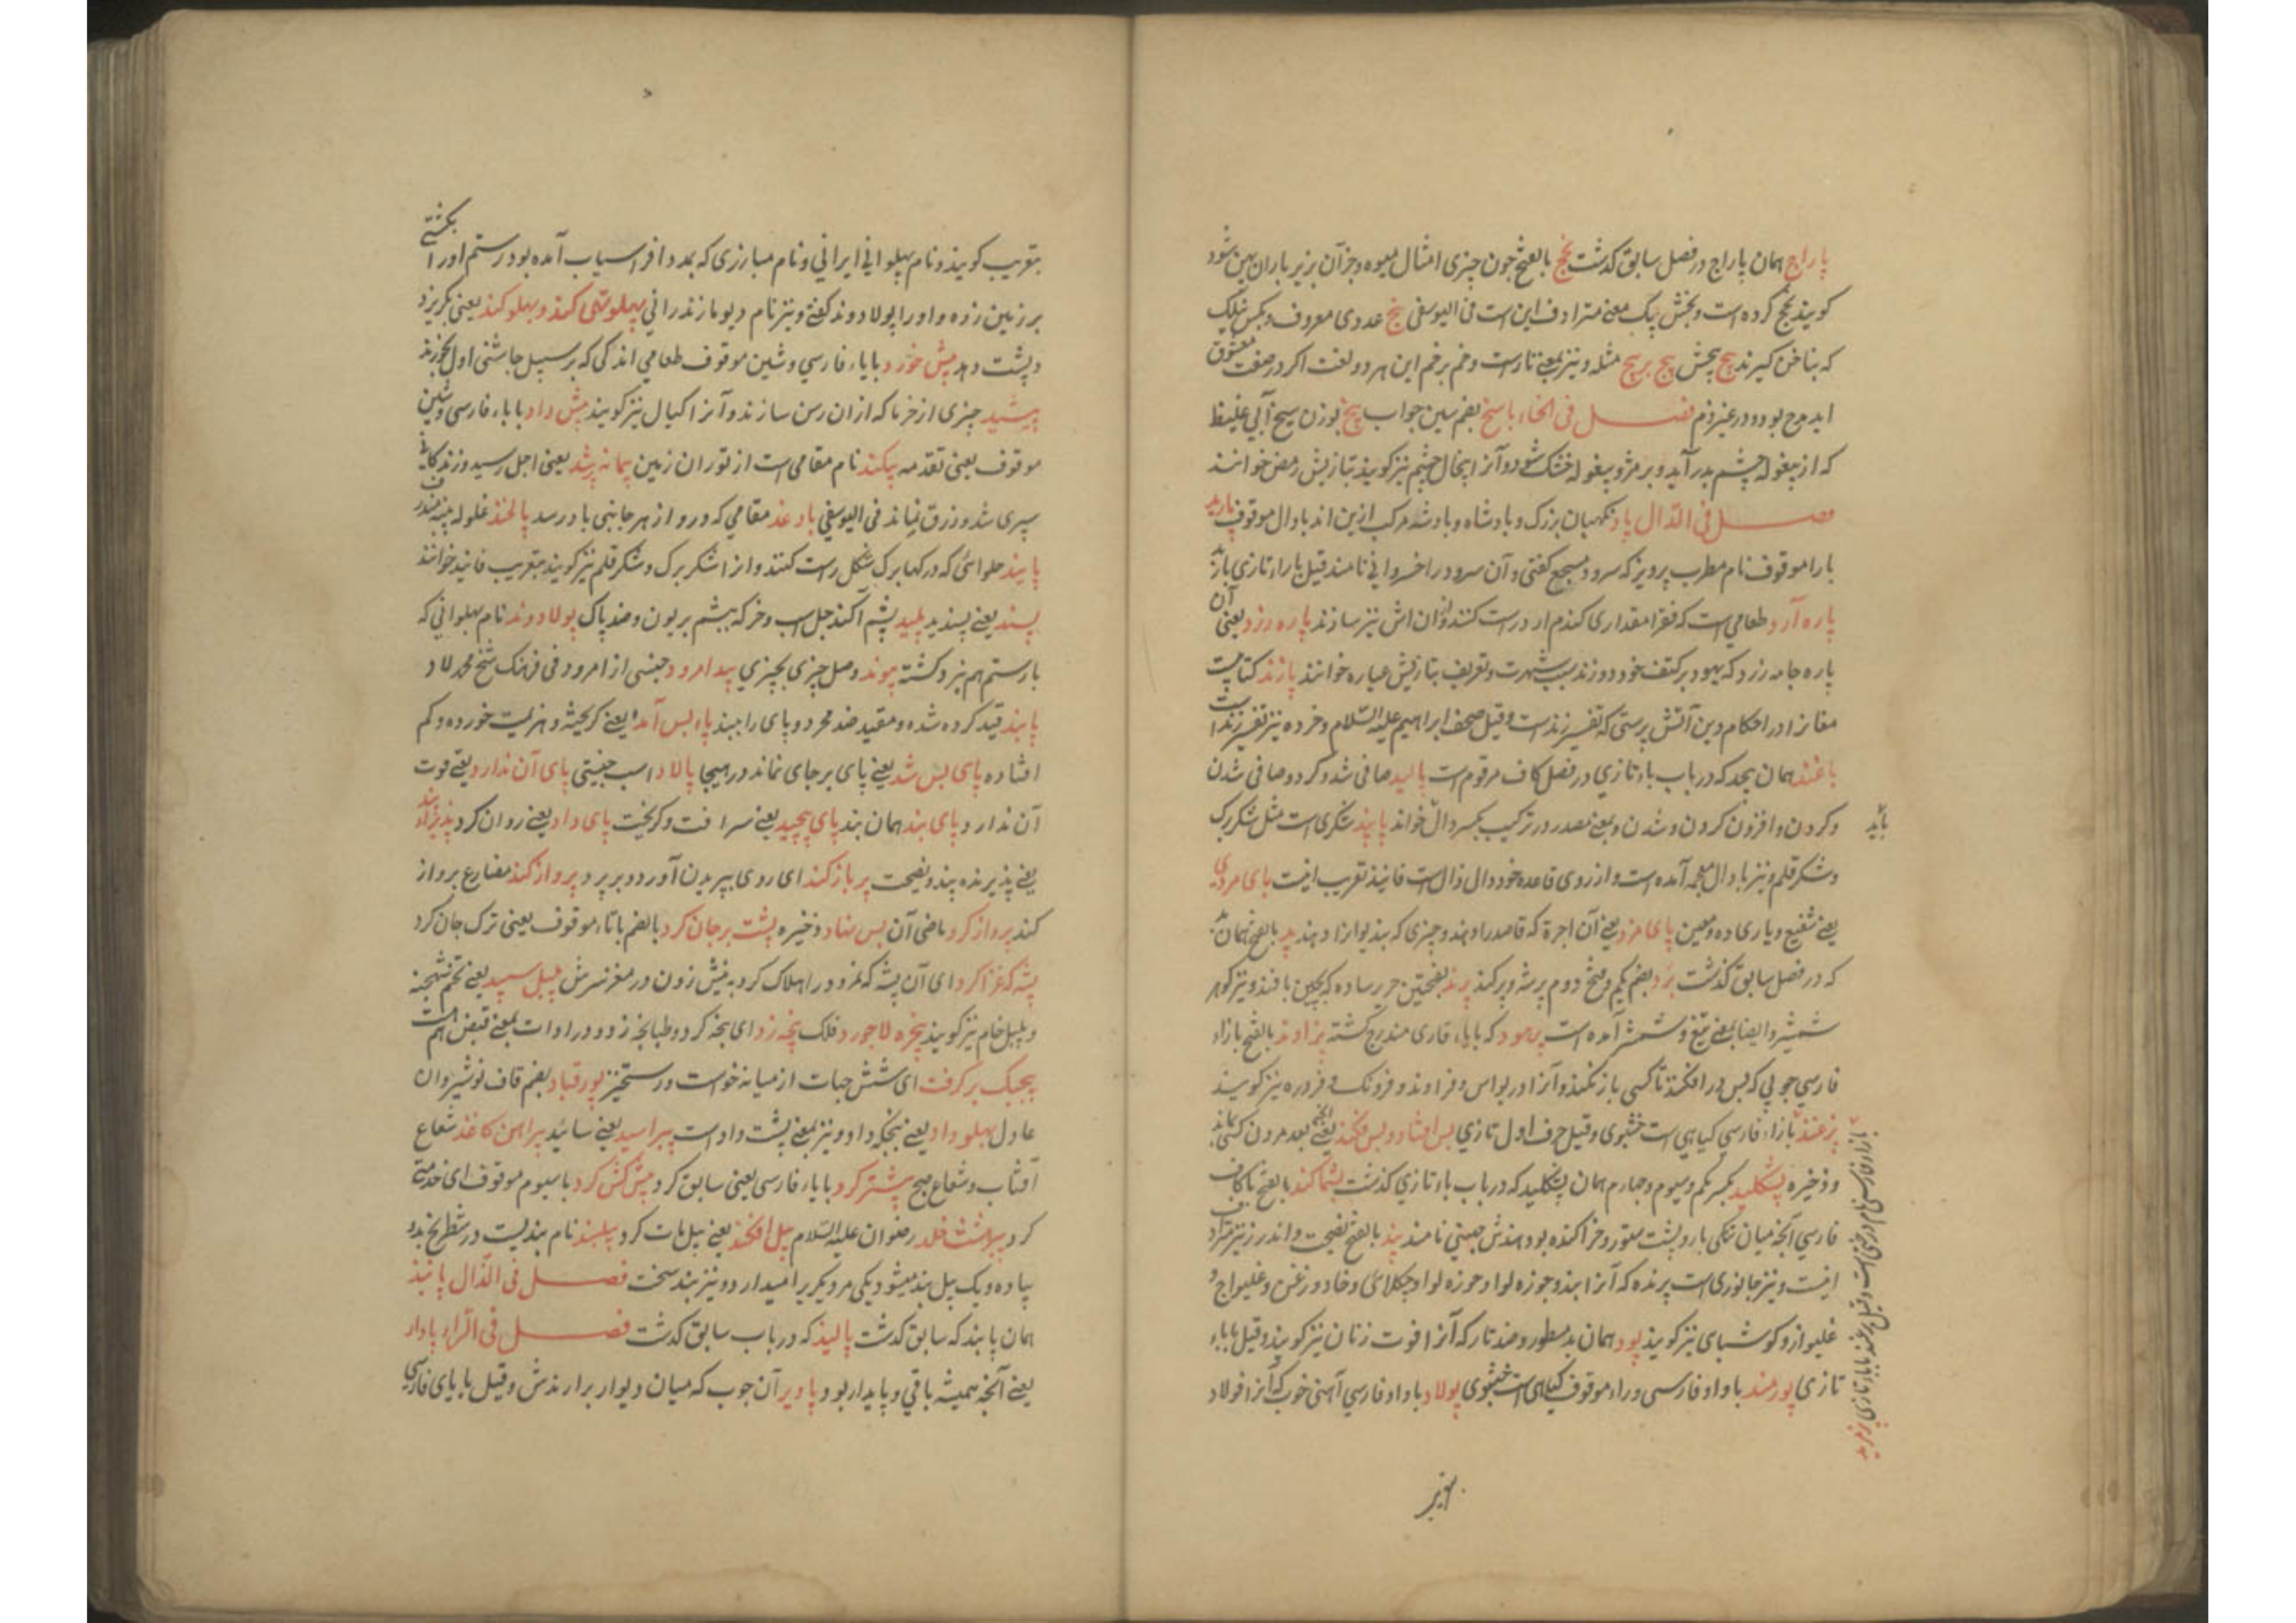 پاراج همان پاراج در فصل سابق کذشت پخج بالفتح چون چیزی امثال میوه و جز آن بزیر باران پهن شود
کویند پخج کرده است و پخش پیک معنی مترادف این است فی الیوسفی پنج عددی معروف و بکسر
که بناخن کیرند پیچ پیچش پیچ بر پیچ مثله و نیز بمعنی تارست و خم بر خم این هر دو لغت اکر در صفت معشوق
اید مدح بود و در غیر ذم فصل فی الخاء پاسخ بضم سین جواب پیخ بوزن سیخ آبی غلیظ
که از پیغوله چشم بدر آید و بر مژه و پیغوله خشک شود و آنرا پیخال چشم نیز کویند بتازیش رمص خوانند
فصل فی الدال پاد نکهبان بزرک و پادشاه و پادشه مرکب ازین اند با دال موقوف پاربد
با را موقوف نام مطرب پرویز که سرود مسجع کفتی و آن سرود را خسروانی نامند قیل باراء تازی
پاره آرد طعامی است که فقرا مقداری کندم ارد راست کنند و از ان اش نیز سازند پاره زرد یعنی آن
پاره جامه زرد که یهود بر کتف خود دوزند بسبب شهرت و تعریف بتازیش عیاره خوانند پازند کتابیست
مغانرا در احکام دین آتش پرستی که تفسیر زندست و قیل صحف ابراهیم علیه السلام و خرده نیز تفسیر زند است
پاغند همان بجد که در باب باء تازی در فصل کاف مرقوم است پالید صافی شد و کرد و صافی شدن
و کردن و افزون کردن و شدن و بمعنی مصدر در ترکیب بکسر دال خواند پانید شکری است مثل شکر برک
و شکر قلم و نیز با دال معجمه آمده است و از روی قاعده خود دال ذال است فانیذ تعریب اینست پای مردی
یعنی شفیع و یاری ده و معین پای مزد یعنی آن اجرة که قاصد را دهند و چیزی که بندیوانرا دهند پد بالفتح همان بد
که در فصل سابق کذشت پرد بضم یکم و فتح دوم پر شود و پر کند پرند بفتحتین حریر ساده که بچین بافند و نیز کوهر
شمشیر و ایضا بمعنی تیغ و شمشیر آمده است پرمود که با یاء فارسی مندرج کشته پژاوند بالفتح با زاء
فارسی چوبی که پس در افکنند تا کسی باز نکند و آنرا در بواس و فراوند و فروتک و فرده نیز کویند
پژغند با زاء فارسی کیاهی است خشبوی و قیل حرف اول تازی پس افتاد و پس فکند یعنی آنکه بعد مردن کسی ماند
و ذخیره پشکلید بکسر یکم و سیوم و چهارم همان بشکلید که در باب باء تازی کذشت پشماکند بالفتح با کاف
فارسی آنچه میان تنکی بار و پشت ستور و خر اکنده بود هندش جهتی نامند پند بالفتح نصیحت و اندرز نیز مترادف
اینست و نیز جانوری است پرنده که آنرا بند و جوزه لوا و جوزه لواد جنکلائی و خاد و زغن و غلیواج
غلیواز و کوشبای نیز کویند پود همان بد مسطور و ضد تار که آنرا فوت زنان نیز کویند و قیل با باء
تازی پورمند با واو فارسی و راء موقوف کیاهی است خشبوی پولاد با واو فارسی آهنی خوب که آنرا فولاد
پانید
بتعریب کویند و نام پهلوانی ایرانی و نام مبارزی که بمدد افراسیاب آمده بود رستم او را بکشتی
بر زمین زده و او را پولادوند کفتی و نیز نام دیو مازندرانی پهلو تهی کند و پهلو کند یعنی بکریزد
و پشت دهد پیش خورد با یاء فارسی و شین موقوف طعامی اندکی که بر سبیل چاشنی اول بخورند
پیشید چیزی از خرما که ازان رسن سازند و آنرا کیال نیز کویند پیش داد با یاء فارسی و شین
موقوف یعنی تقدمه پیکند نام مقامی است از توران زمین پیمانه پر شد یعنی اجل رسید و زندکانی
سپری شد و رزق نماند فی الیوسفی بادغد مقامی که در و از هر جانبی باد رسد پالغند غلوله پنبه
پانید حلوائی که در کهابرک شکل راست کنند و انرا شکر برک و شکر قلم نیز کویند بتعریب فانید خوانند
پسند یعنی پسندید پلید پشم آکند جل اسب و خر که بپشم پر بود و ضد پاک پولادوند نام پهلوانی که
با رستم هم نبرد کشته پیوند وصل چیزی بچیزی پیدامرود جنسی از امرود فی فرهنک شیخ محمد لاد
پابند قید کرده شده و مقید ضد مجرد و پای را ببند پاء پس آمد یعنی کریخته و هزیمت خورده و کم
افتاده پای پس شد یعنی پای بر جای نماند در هیجا پالاد اسب جنیبتی پای آن ندارد یعنی قوت
آن ندارد پای بند همان بند پای پیچید یعنی سر افت و کریخت پای داد یعنی روان کرد
یعنی پذیرنده پند و نصیحت پر باز کند ای روی بپریدن آورد و بر پرد پرواز کند مضارع پرواز
کند پرواز کرد ماضی آن پس نهاد ذخیره پشت بر جان کرد بالضم با تاء موقوف یعنی ترک جان کرد
پشه که غزا کرد ای آن پشه که نمرود را هلاک کرد به نیش زدن در مغز سرش پیل سپید یعنی
و پلپل خام نیز کویند پنجره لاجورد فلک پنجه زد ای پنجه کرد و طپانچه زد و در ادات بمعنی قبض هم است
پیچک بر کرفت ای شش جهات از میانه خواست و رستخیز پور قباد بضم قاف نوشیروان
عادل پهلو داد یعنی پنجکه داد و نیز بمعنی پشت داد است پیراسید یعنی سائید پیراهن کاغذ شعاع
آفتاب و شعاع صبح پیشتر کرد با یاء فارسی یعنی سابق کرد پیش کش کرد با سیوم موقوف ای خدمتی
کرد پیر هشت خلد رضوان علیه السلام پیل افکند یعنی پیل مات کرد پیلبند نام بندیست در شطرنج بدو
پیاده و یک پیل بند میشود یکی مر دیکریرا میدارد و نیز بند سخت فصل فی الذال پانیذ
همان پانید که سابق کذشت پالیذ که در باب سابق کذشت فصل فی الراء پادار
یعنی آنچه همیشه باقی و پایدار بود پادیر آن چوب که میان دیوار بر آرندش و قیل با یای فارسی